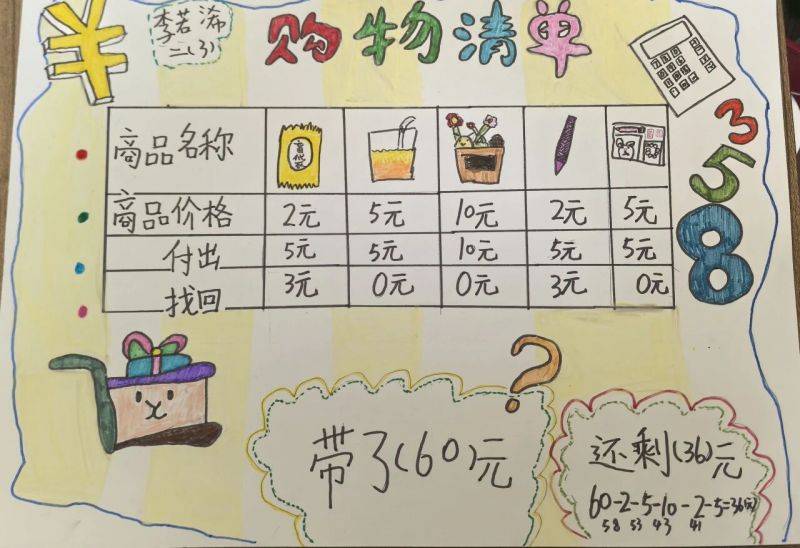 ¥
李若浠
二(3)
购物清单
3
5
8
商品名称
商品价格 2元 5元 10元 2元 5元
付出 5元 5元 10元 5元 5元
找回 3元 0元 0元 3元 0元
?
带了(60)元
还剩(36)元
60-2-5-10-2-5=36(元)
58 53 43 41